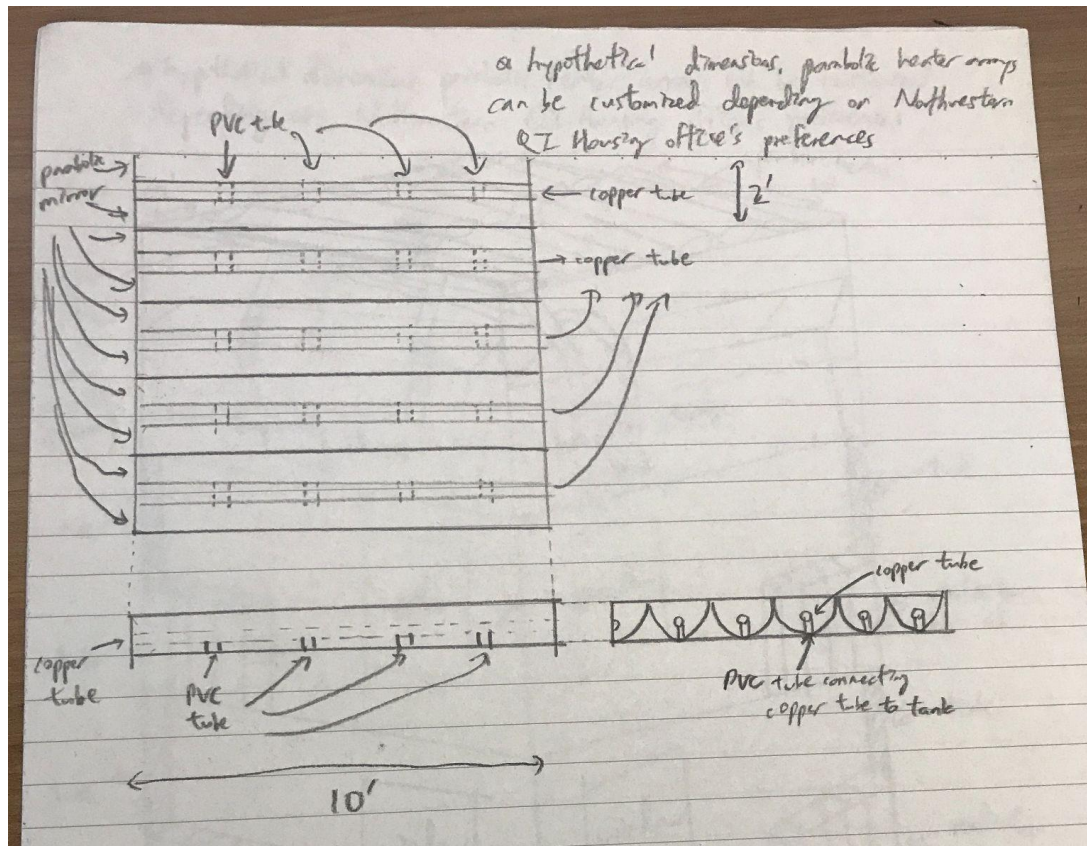 a hypothetical dimensions, parabolic heater arrays
can be customized depending on Northwestern
QI Housing office's preferences
PVC tube
parabolic
mirror
copper tube
2'
copper tube
copper tube
copper
tube
PVC
tube
PVC tube connecting
copper tube to tank
10'